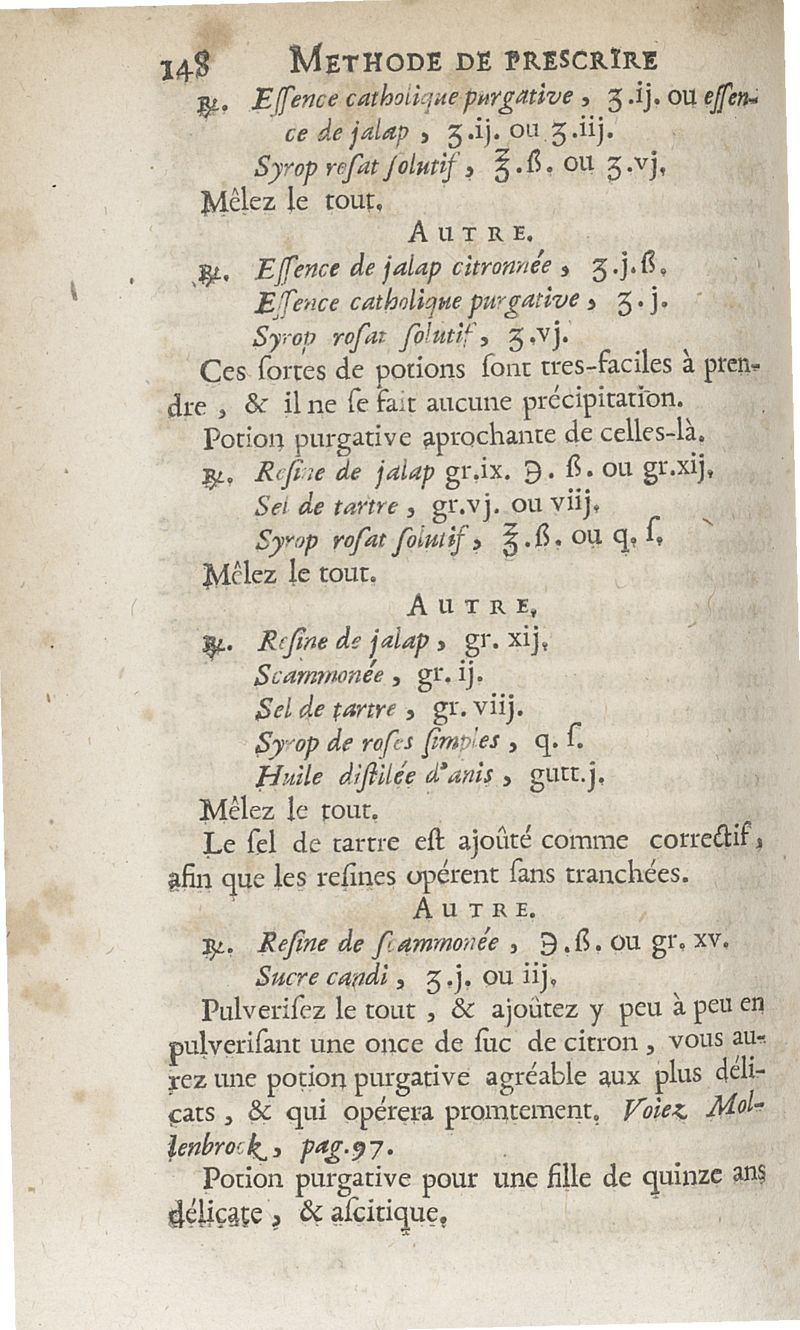 148 METHODE DE PRESCRIRE
℞. Eſſence catholique purgative, ʒ.ij. ou eſſen-
ce de jalap, ʒ.ij. ou ʒ.iij.
Syrop roſat ſolutif, ℥.ß. ou ʒ.vj.
Mêlez le tout.
AUTRE.
℞. Eſſence de jalap citronnée, ʒ.j.ß.
Eſſence catholique purgative, ʒ.j.
Syrop roſat ſolutif, ʒ.vj.
Ces ſortes de potions ſont tres-faciles à pren-
dre, & il ne ſe fait aucune précipitation.
Potion purgative aprochante de celles-là.
℞. Reſine de jalap gr.ix. ℈. ß. ou gr.xij.
Sel de tartre, gr.vj. ou viij.
Syrop roſat ſolutif, ℥.ß. ou q. ſ.
Mêlez le tout.
AUTRE.
℞. Reſine de jalap, gr. xij.
Scammonée, gr. ij.
Sel de tartre, gr. viij.
Syrop de roſes ſimples, q. ſ.
Huile diſtilée d'anis, gutt.j.
Mêlez le tout.
Le ſel de tartre eſt ajoûté comme correctif,
afin que les reſines opérent ſans tranchées.
AUTRE.
℞. Reſine de ſcammonée, ℈.ß. ou gr. xv.
Sucre candi, ʒ.j. ou iij.
Pulveriſez le tout, & ajoûtez y peu à peu en
pulveriſant une once de ſuc de citron, vous au-
rez une potion purgative agréable aux plus déli-
cats, & qui opérera promtement. Voiez Mol-
lenbrock, pag.97.
Potion purgative pour une fille de quinze ans
délicate, & aſcitique.